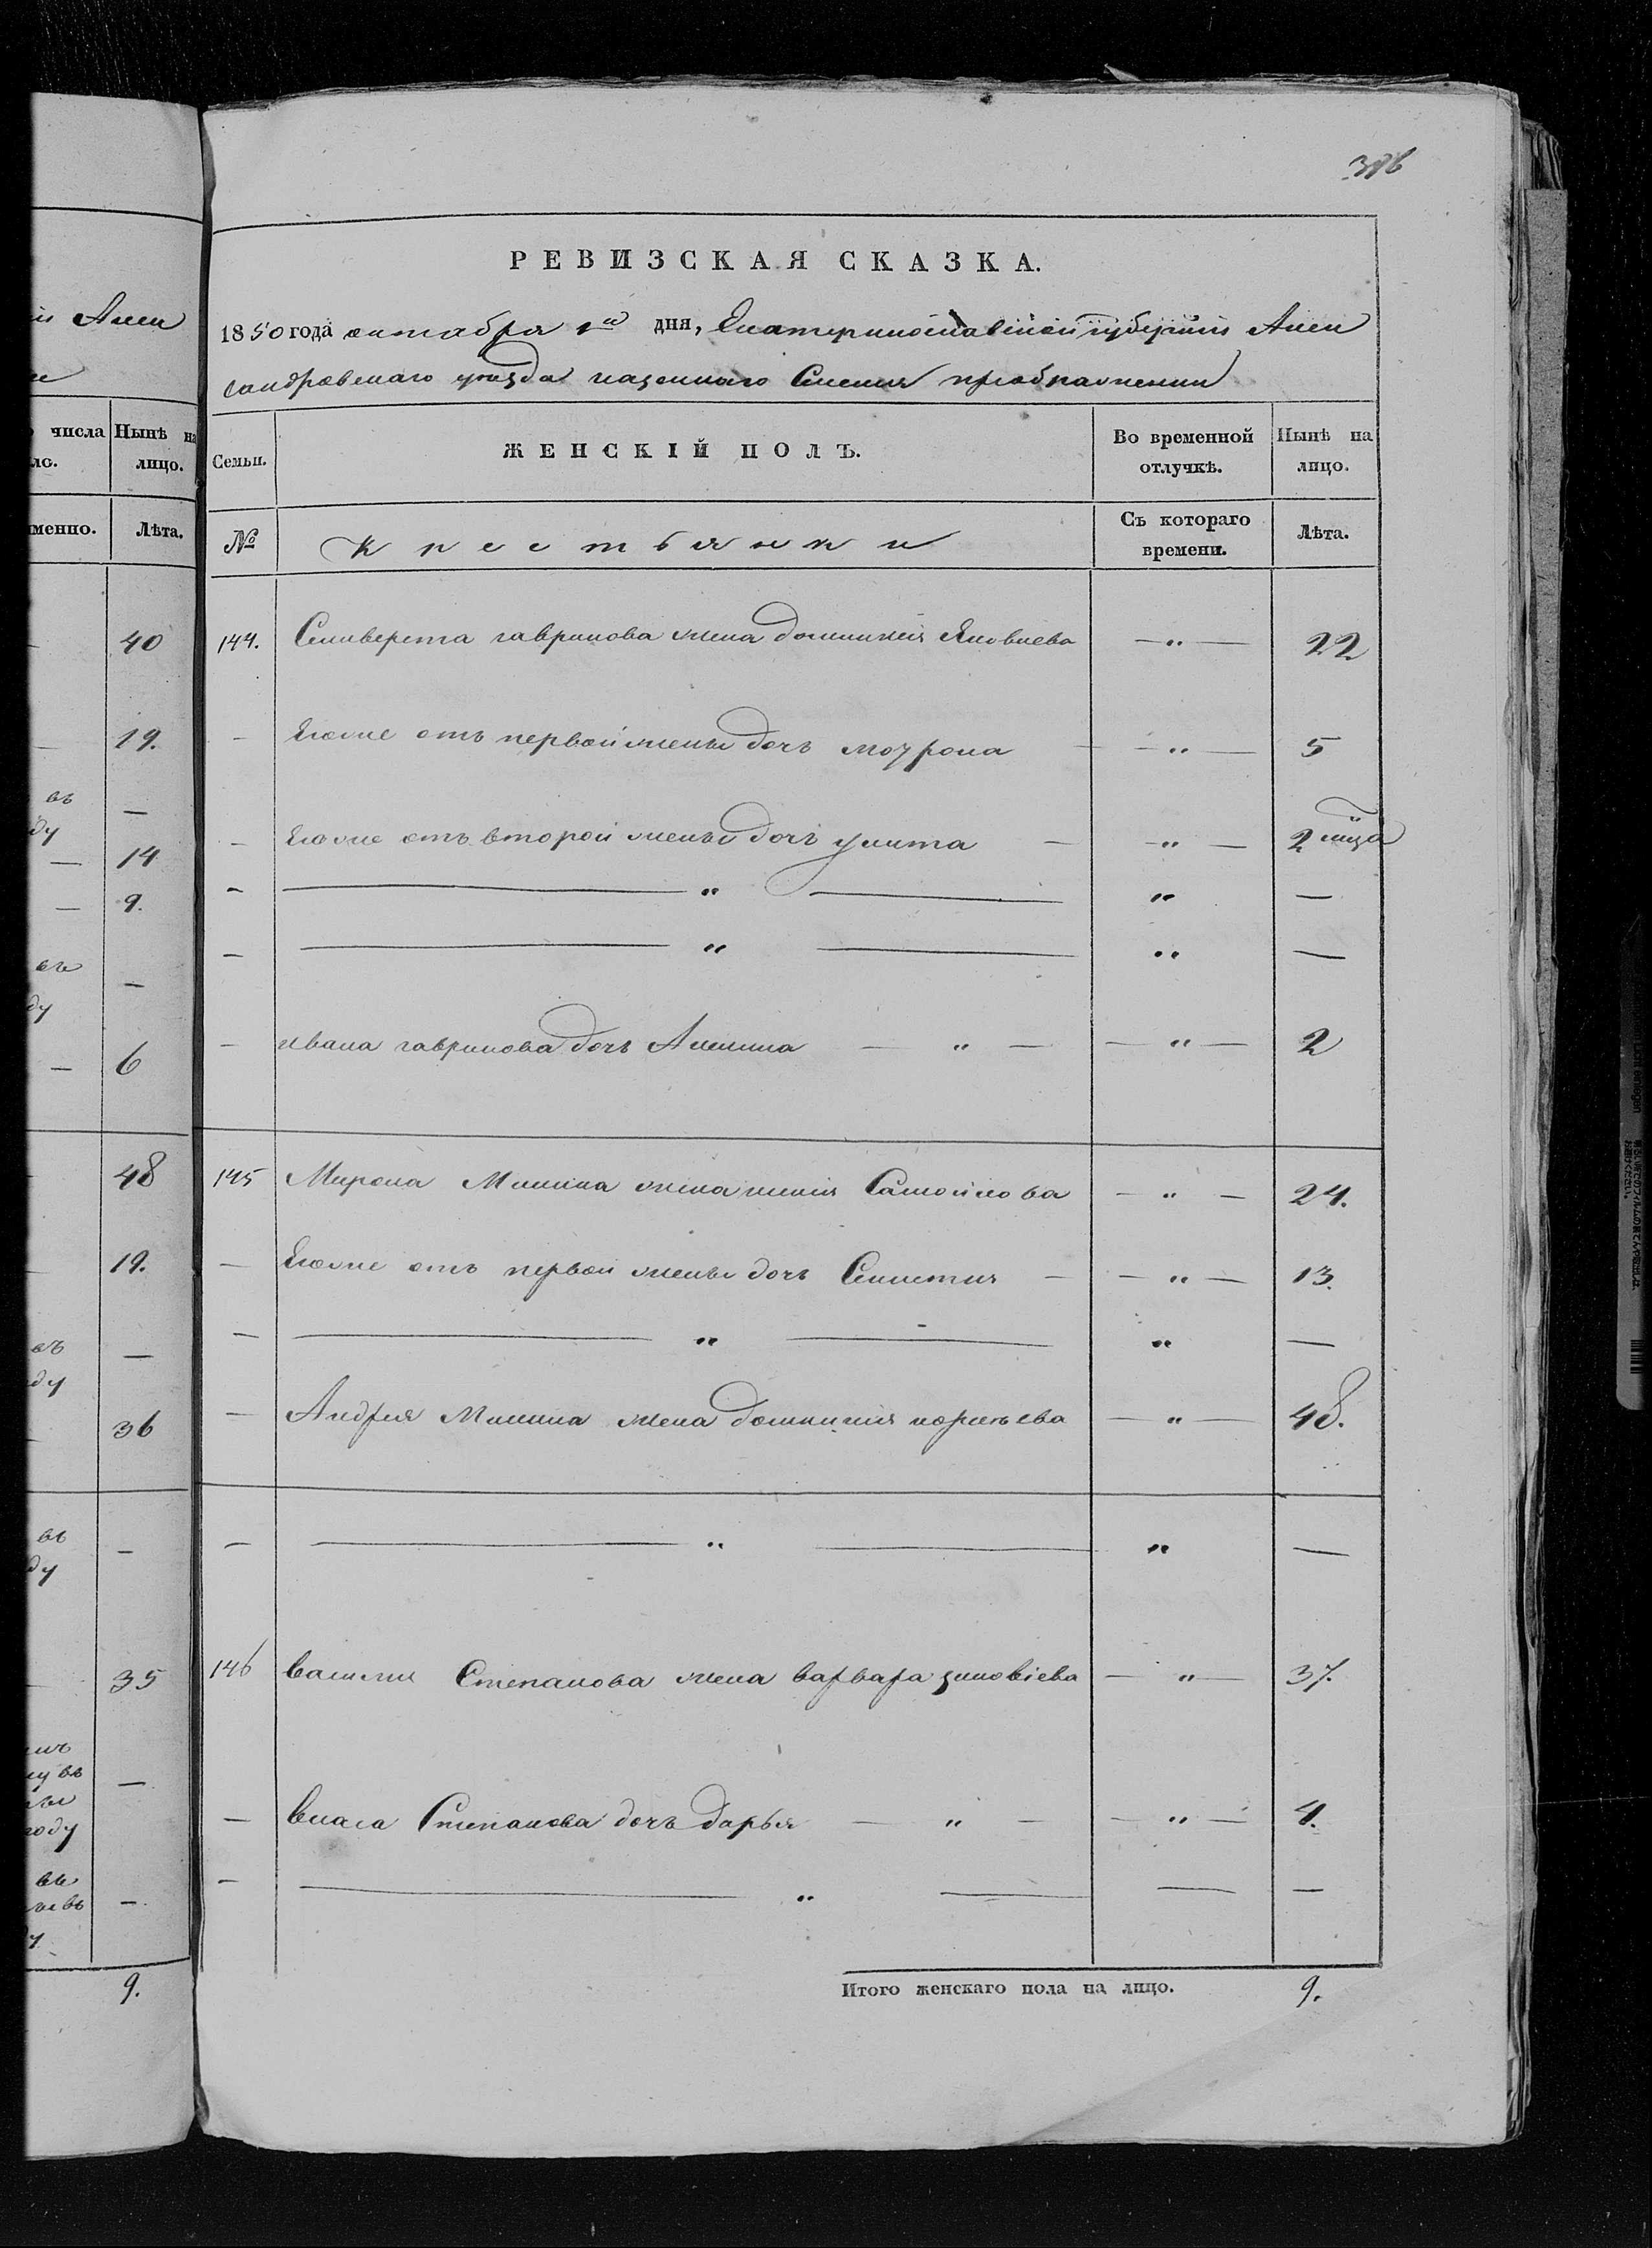 386
РЕВИЗСКАЯ СКАЗКА.
1850 года октября 1го дня, Екатеринославской губернiи Алек
сандровскаго уезда казенного Селения преображенки
Семьи. ЖЕНСКІЙ ПОЛЪ. Во временной отлучкѣ. Нынѣ на лицо.
№ Крестьянки Съ котораго времени. Лѣта.
144. Селиверста гаврилова жена домникия Яковлева — „ — 22
— Егоже отъ первой жены дочь мотрона — „ — 5
— Егоже отъ второй жены дочь улита — „ — 2 мца
— — „ — „ —
— — „ — „ —
— ивана гаврилова дочь Акилина — „ — — „ — 2
145 Мирона Минина жена ксения Самойлова — „ — 24.
— Егоже отъ первой жены дочь Секлетия — — „ — 13.
— — „ — „ —
— Андрея Минина жена домникия корнѣева — „ — 48.
— — „ — „ —
146 василия Степанова жена варвара зиновіева — „ — 37.
— власа Степанова дочь дарья — „ — — „ — 4.
— — „ — — —
Итого женскаго пола на лицо. 9.
й Алек
числа Нынѣ на
ло. лицо.
именно. Лѣта.
— 40
— 19.
въ
ду —
— 14
— 9.
въ —
ду
— 6
48
19.
въ —
ду
36
въ —
ду
35
году
—
9.